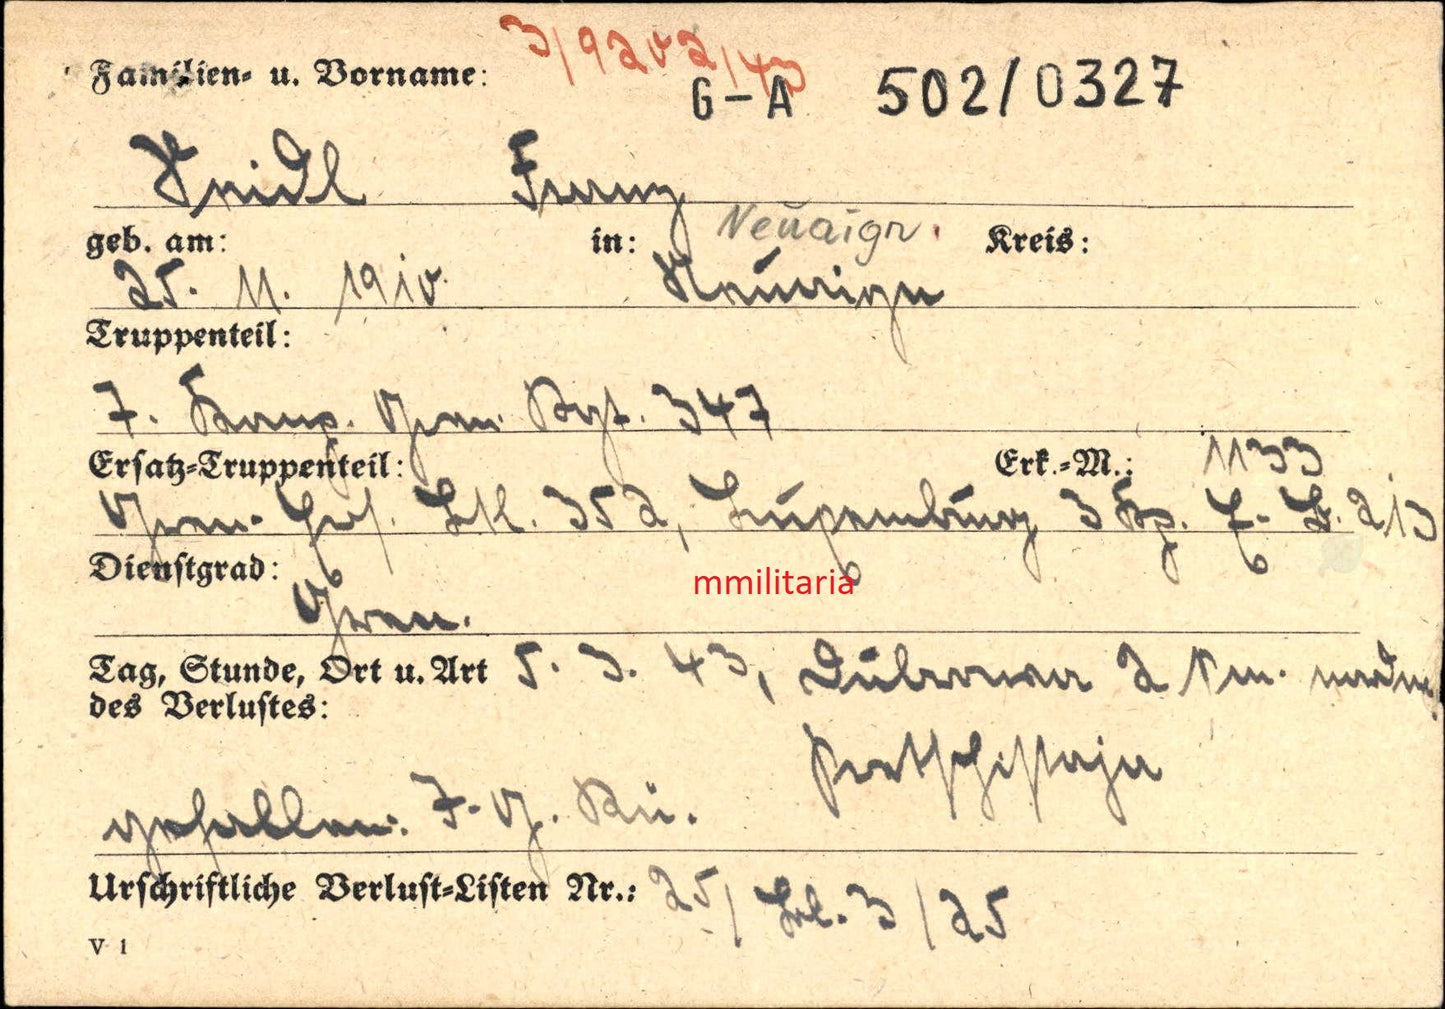 3/9202/43
Familien- u. Vorname:
G-A 502/0327
Franz
geb. am: in: Neuaign. Kreis:
25. 11. 1910. Neuaign
Truppenteil:
7. Komp. Gren. Rgt. 347
Ersatz-Truppenteil: Erk.-M.: 1133
Gren. Ers. Btl. 352, Luxemburg 3 Kp. I. R. 213
Dienstgrad:
mmilitaria
Gren.
Tag, Stunde, Ort u. Art 5. 3. 43, Dubrowa 2 km.
des Verlustes:
gefallen. I-G. Rü.
Urschriftliche Verlust-Listen Nr.: 25/ 3/25
V 1